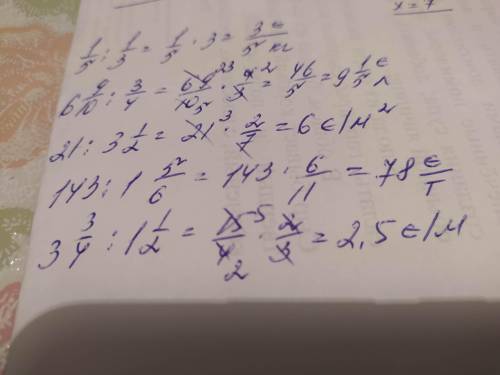 x = 7
1/5 : 1/3 = 1/5 · 3 = 3/5 є/кг
6 9/10 : 3/4 = 69/10 · 4/3 = 46/5 = 9 1/5 є/л
21 : 3 1/2 = 21 · 2/7 = 6 є/м²
143 : 1 5/6 = 143 · 6/11 = 78 є/т
3 3/4 : 1 1/2 = 15/4 · 2/3 = 2,5 є/м